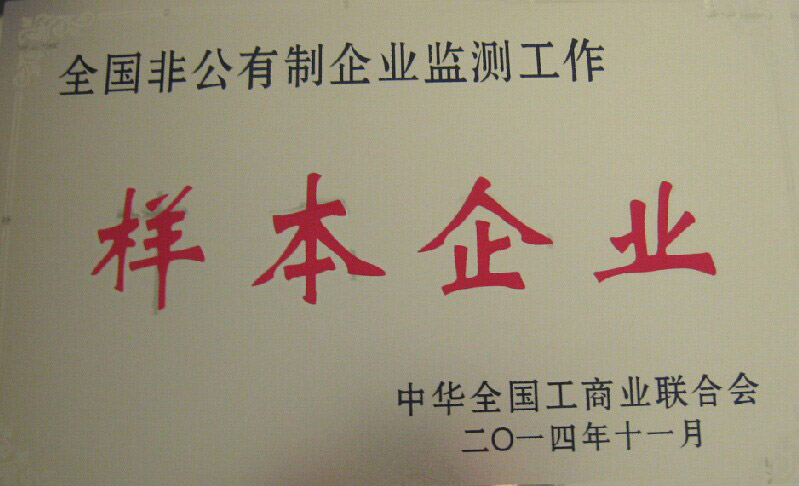 全国非公有制企业监测工作
样本企业
中华全国工商业联合会
二〇一四年十一月